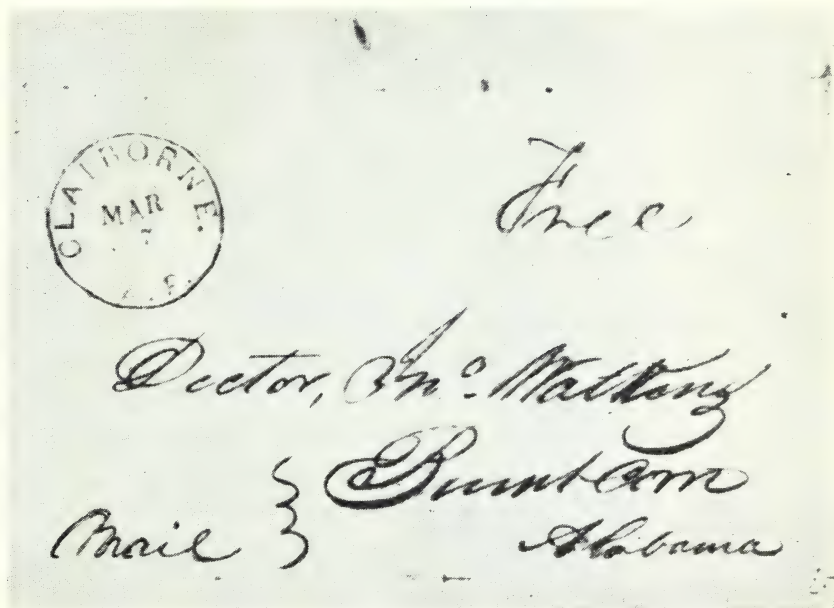 CLAIBORNE.
MAR
7
Free
Doctor, Jno. Watkins
Burnt Corn
Mail
Alabama